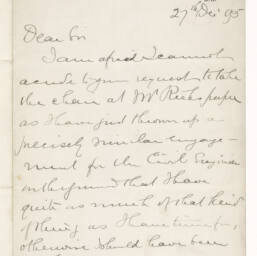 27th Dec 95
Dear Sir
I am afraid I cannot
accede to your request to take
the chair at Mr paper
as I have just thrown up a
precisely similar engage-
ment for the Civil Engineers
on the ground that I have
quite as much of that kind
of thing as I have time for,
otherwise I should have been